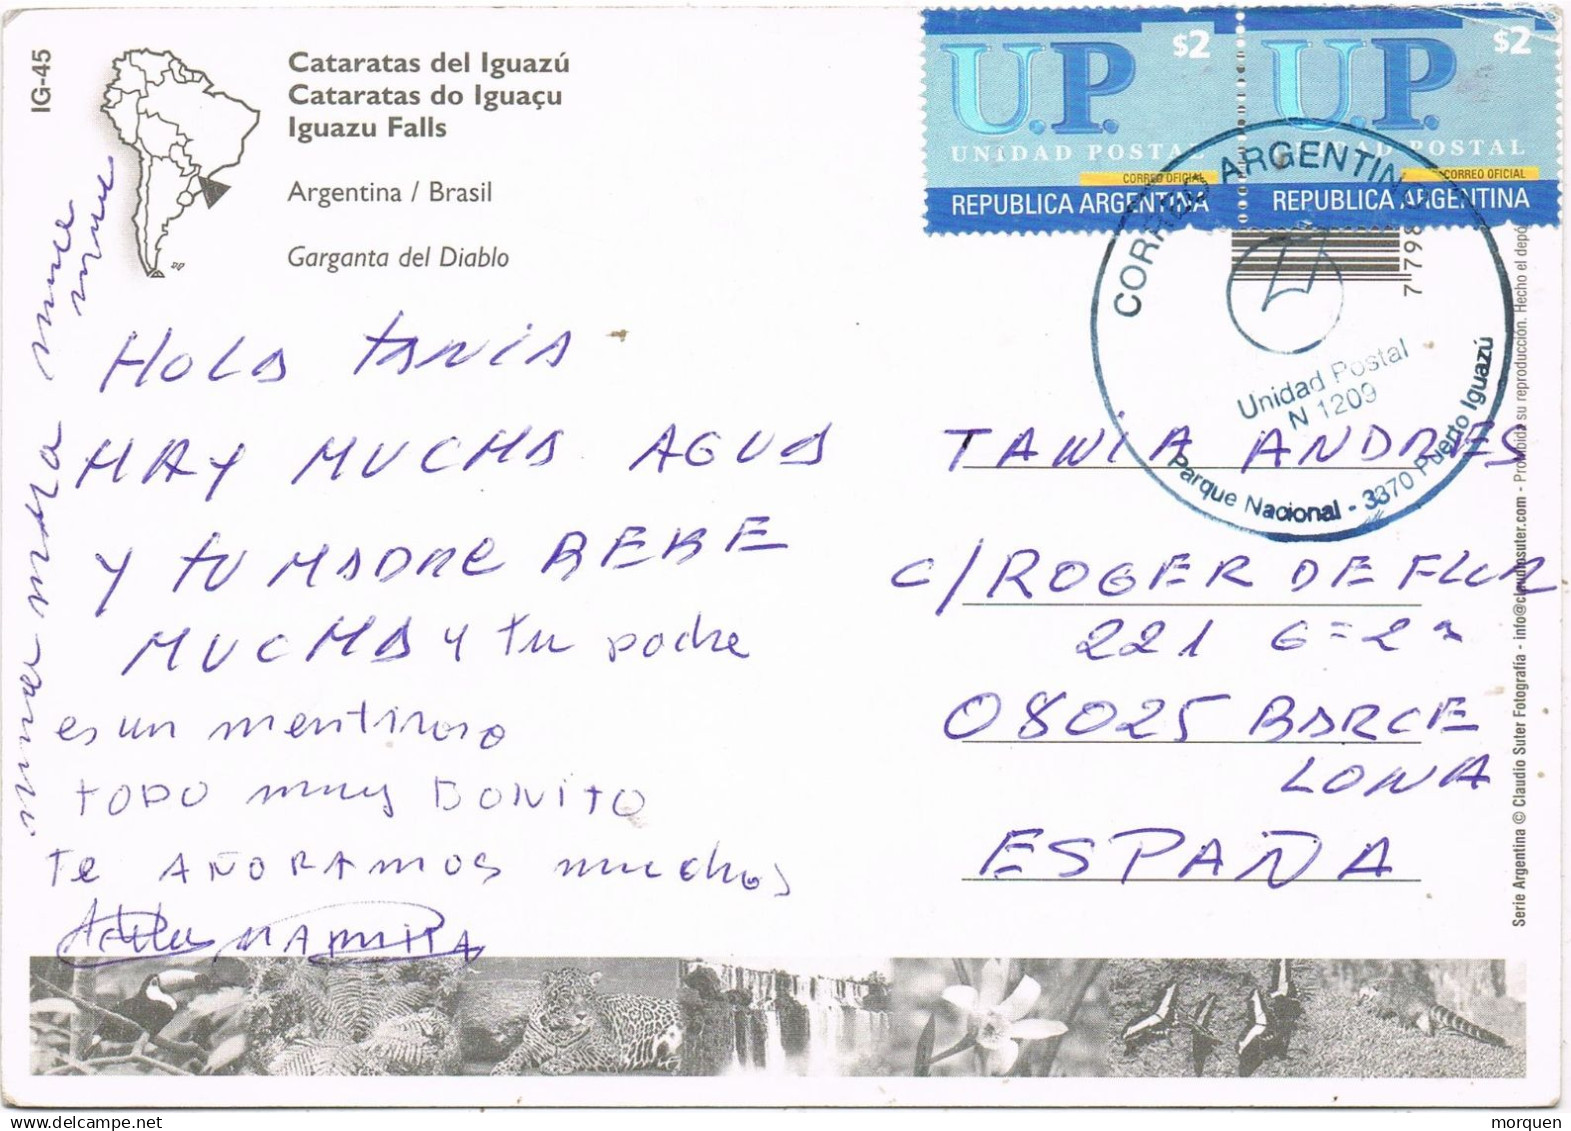 IG-45
Cataratas del Iguazú
Cataratas do Iguaçu
Iguazu Falls
Argentina / Brasil
Garganta del Diablo
HOLA TANIA
HAY MUCHA AGUA
Y TU MADRE BEBE
MUCHA y tu padre
es un mentiroso
TODO muy BONITO
Te AÑORAMOS muchos
U.P. $2
UNIDAD POSTAL
CORREO OFICIAL
REPUBLICA ARGENTINA
U.P. $2
UNIDAD POSTAL
CORREO OFICIAL
REPUBLICA ARGENTINA
CORREO ARGENTINO
Unidad Postal
N 1209
Parque Nacional - 3370 Puerto Iguazú
TANIA ANDRES
C/ ROGER DE FLOR
221 6º 2ª
08025 BARCE
LONA
ESPAÑA
Serie Argentina © Claudio Suter Fotografía - info@claudiosuter.com - Prohibida su reproducción. Hecho el depó
morquen